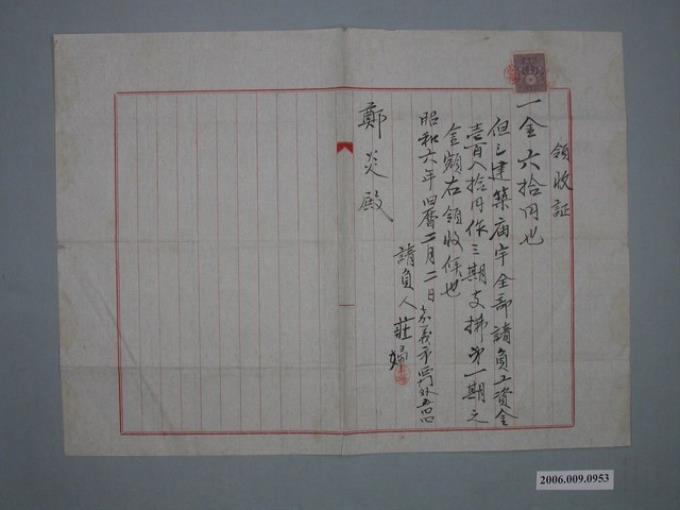 領收証
一金六拾円也
但シ建築庙宇全部請負工資金
壱百八拾円作三期支拂第一期之
金額右領收候也
昭和六年旧曆二月二日
嘉義市西門外
請負人 莊
鄭炎殿
2006.009.0953